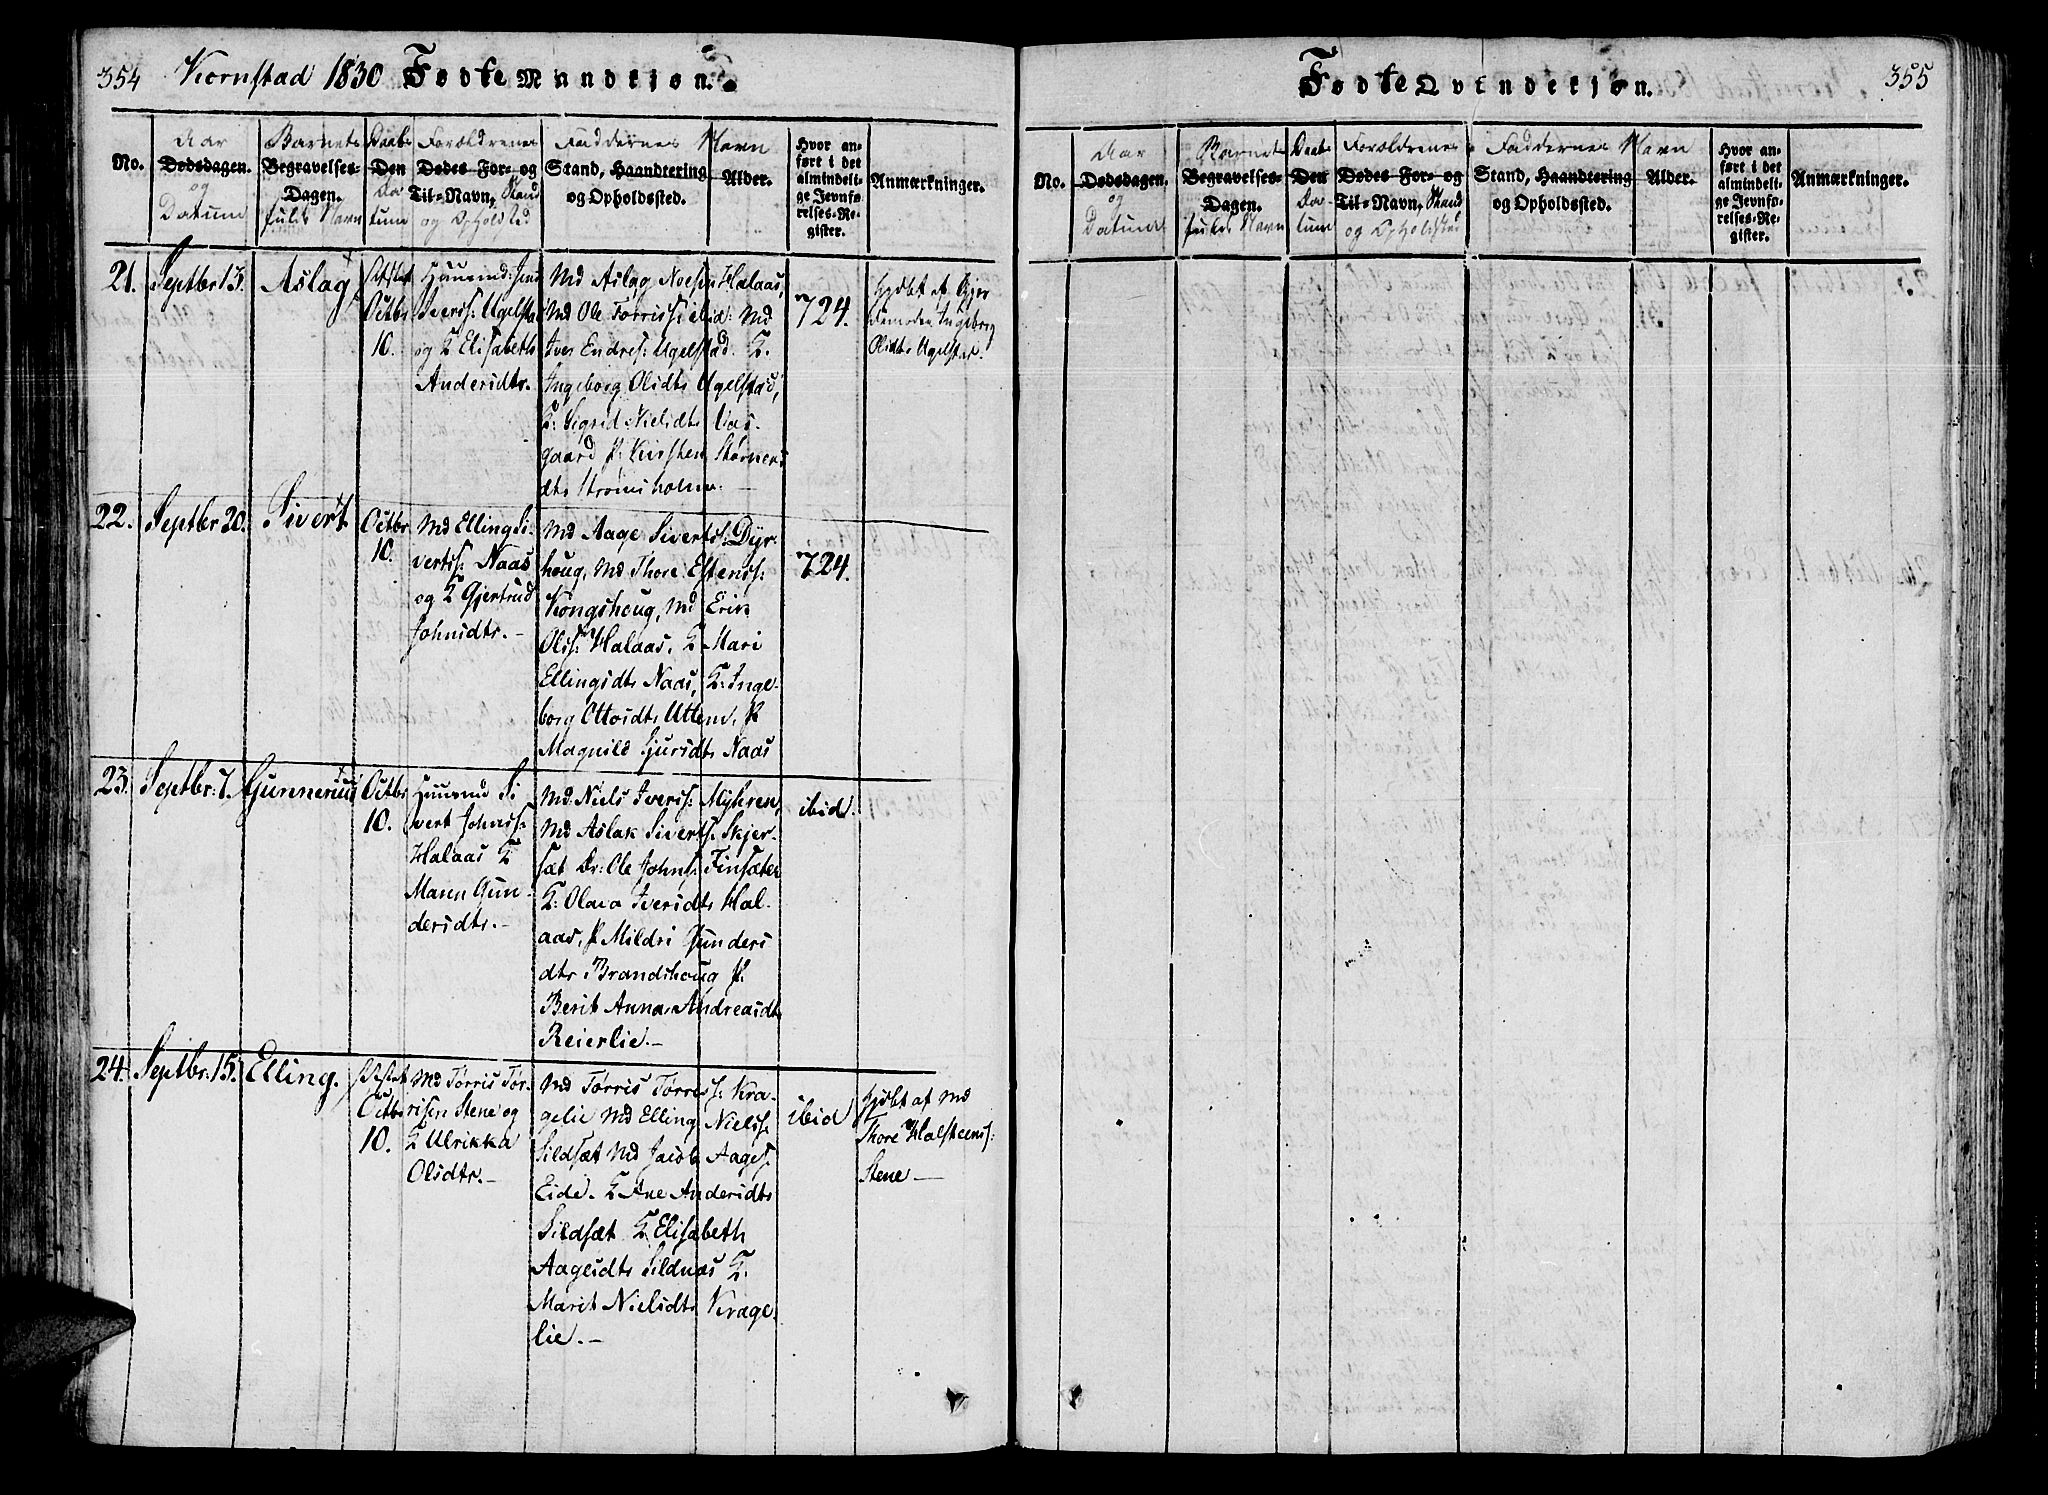 354 Kornstad 1830 Fødte Mandkjøn.
No.
Aar
Dødsdagen.
og
Datum
Barnets
Begravelses-
Dagen.
fulde Navn
Daabs
Den
Da
tum
Forældrenes
Dødes For- og
Til-Navn, Stand
og Opholdsted
Faddernes Navn
Stand, Haandtering
og Opholdssted.
Alder.
Hvor an-
ført i det
almindeli-
ge Jevnfø-
relses-Re-
gister.
Anmærkninger.
21.
Septbr 13.
Aslag
Octbr
10.
Iverss: Ugelstad
og K Elisabeth
Andersdtr.
Md Aslag Halaas,
Md Ole Torriss: ibid: Md
Iver Endres: Ugelstad. K.
Ingeborg Olsdtr Ugelstad,
K: Sigrid Nielsdtr Vas-
gaard P. Kirsten Størners
dtr Strømsholm.
724.
Hjdbt af Gjor
demoder Ingeborg
Olsdtr Ugelstad.
22.
Septbr 20.
Sivert
Octbr
10.
Md Elling Si-
vertss: Naas
og K Gjertrud
Johnsdtr. –
Md Aage Sivertss: Dyr-
houg, Md Thore Estenss:
Kongshoug, Md Erik
Olss: Halaas, K Mari
Ellingsdtr Naas, K: Inge-
borg Ottosdtr Uttem, P
Magnild Sjursdtr Naas
724.
23.
Septbr: 7.
Gunnerius
Octbr
10.
Huusmd Si
vert Johnss:
Halaas K
Maren Gun-
dersdtr. –
Md: Niels Iverss: Myhren,
Md Aslak Siverts: Skjer-
sæt Dr: Ole Johns: Finsæter
K: Olava Iversdtr Hal-
aas, P Mildri Gunders
dtr Brandshoug P.
Berit Anna Andreasdtr
Reierlie. –
ibid.
24.
Septbr: 15.
Elling.
Octbr
10.
Md Tørris Tør-
risen Stene og
K Ulrikka
Olsdtr. –
Md Tørris Tørress: Kra-
gelie Md Elling Nielss:
Sildsæt Md Jacob Aages:
Eide. K Ane Andersdtr
Sildsæt K Elisabeth
Aagesdtr Sildnas K.
Marit Nielsdtr Krage-
lie. –
ibid
Hjdbt af Md
Thore Halsteenss:
Stene –
Fødte Qvindekjøn. 355
No.
Aar
Dødsdagen.
og
Datum
Barnets
Begravelses-
Dagen.
fulde Navn
Daabs
Den
Da-
tum
Forældrenes
Dødes For- og
Til-Navn, Stand
og Opholdsted
Faddernes Navn
Stand, Haandtering
og Opholdssted.
Alder.
Hvor an-
ført i det
almindeli-
ge Jevnfø-
relses-Re-
gister.
Anmærkninger.